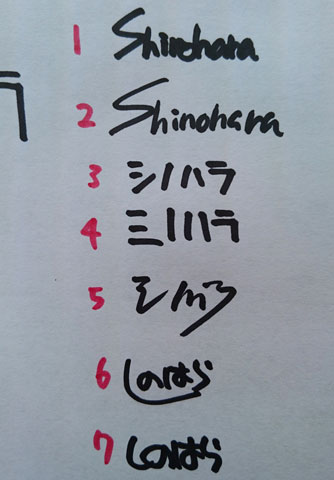 1 Shinohara
2 Shinohara
3 シノハラ
4 ミノハラ
5 シノハラ
6 しのはら
7 しのはら